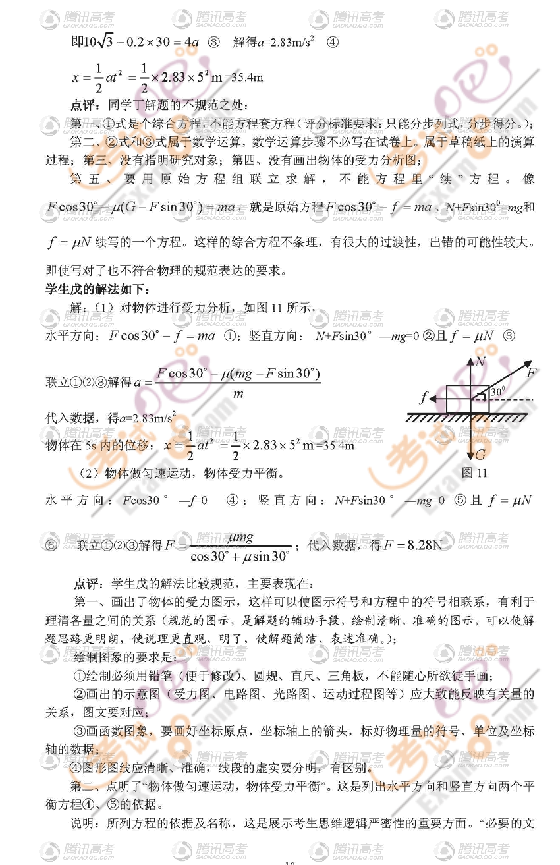 即10√3－0.2×30＝4a ③ 解得a=2.83m/s² ④
x = 1/2 at² = 1/2 × 2.83 × 5² m=35.4m
点评：同学丁解题的不规范之处：
第一、①式是个综合方程，不能方程套方程（评分标准要求：只能分步列式，分步得分。）；
第二、②式和③式属于数学运算，数学运算步骤不必写在试卷上，属于草稿纸上的演算
过程；第三、没有指明研究对象；第四、没有画出物体的受力分析图；
第五、要用原始方程组联立求解，不能方程里“续”方程。像
F cos30°－μ(G－F sin30°)＝ma，就是原始方程F cos30°－f＝ma、N+Fsin30⁰=mg和
f＝μN 续写的一个方程。这样的综合方程不条理，有很大的过渡性，出错的可能性较大。
即使写对了也不符合物理的规范表达的要求。
学生戊的解法如下：
解：（1）对物体进行受力分析，如图 11 所示，
水平方向：F cos30°－f＝ma ①；竖直方向：N+Fsin30°—mg=0 ②且 f＝μN ③
联立①②③解得 a = (F cos30°－μ(mg－F sin30°))/m
代入数据，得a=2.83m/s²
物体在 5s 内的位移：x = 1/2 at² = 1/2 × 2.83 × 5² m =35.4m
N
F
f
30⁰
G
图 11
（2）物体做匀速运动，物体受力平衡。
水平方向：Fcos30°—f 0 ④；竖直方向：N+Fsin30°—mg 0 ⑤且 f＝μN
⑥ 联立①②③解得 F = μmg/(cos30°＋μ sin30°)；代入数据，得 F = 8.28N
点评：学生戊的解法比较规范，主要表现在：
第一、画出了物体的受力图示，这样可以使图示符号和方程中的符号相联系，有利于
理清各量之间的关系（规范的图示，是解题的辅助手段、绘制清晰、准确的图示，可以使解
题思路更明朗，使说理更直观、明了、使解题简洁、表述准确。）；
绘制图象的要求是：
①绘制必须用铅笔（便于修改）、圆规、直尺、三角板，不能随心所欲徒手画；
②画出的示意图（受力图、电路图、光路图、运动过程图等）应大致能反映有关量的
关系，图文要对应；
③画函数图象，要画好坐标原点，坐标轴上的箭头，标好物理量的符号、单位及坐标
轴的数据；
④图形图线应清晰、准确，线段的虚实要分明，有区别。
第二、点明了“物体做匀速运动，物体受力平衡”。这是列出水平方向和竖直方向两个平
衡方程④、⑤的依据。
说明：所列方程的依据及名称，这是展示考生思维逻辑严密性的重要方面。“必要的文